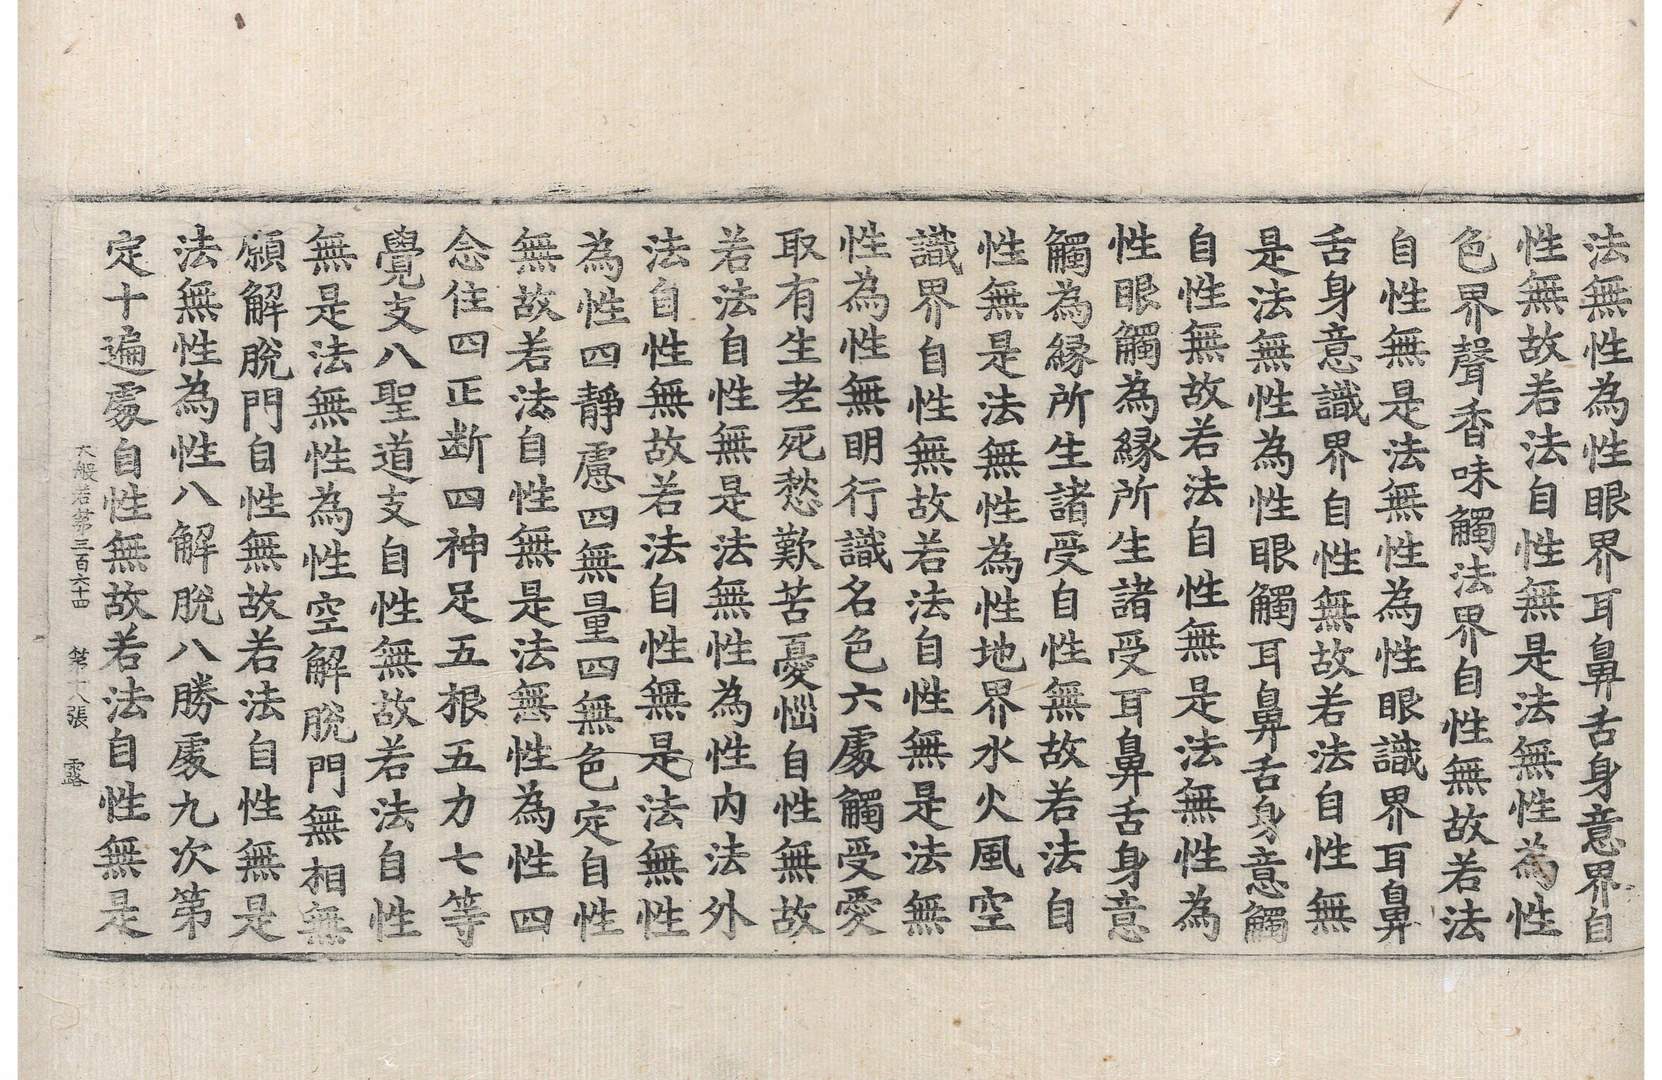 法無性為性眼界耳鼻舌身意界自
性無故若法自性無是法無性為性
色界聲香味觸法界自性無故若法
自性無是法無性為性眼識界耳鼻
舌身意識界自性無故若法自性無
是法無性為性眼觸耳鼻舌身意觸
自性無故若法自性無是法無性為
性眼觸為緣所生諸受耳鼻舌身意
觸為緣所生諸受自性無故若法自
性無是法無性為性地界水火風空
識界自性無故若法自性無是法無
性為性無明行識名色六處觸受愛
取有生老死愁歎苦憂惱自性無故
若法自性無是法無性為性內法外
法自性無故若法自性無是法無性
為性四靜慮四無量四無色定自性
無故若法自性無是法無性為性四
念住四正斷四神足五根五力七等
覺支八聖道支自性無故若法自性
無是法無性為性空解脫門無相無
願解脫門自性無故若法自性無是
法無性為性八解脫八勝處九次第
定十遍處自性無故若法自性無是
大般若第三百六十四 第十八張 露